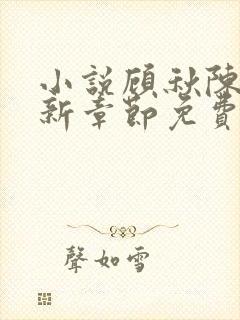 小說顧秋陳
新章節免費
聲如雪